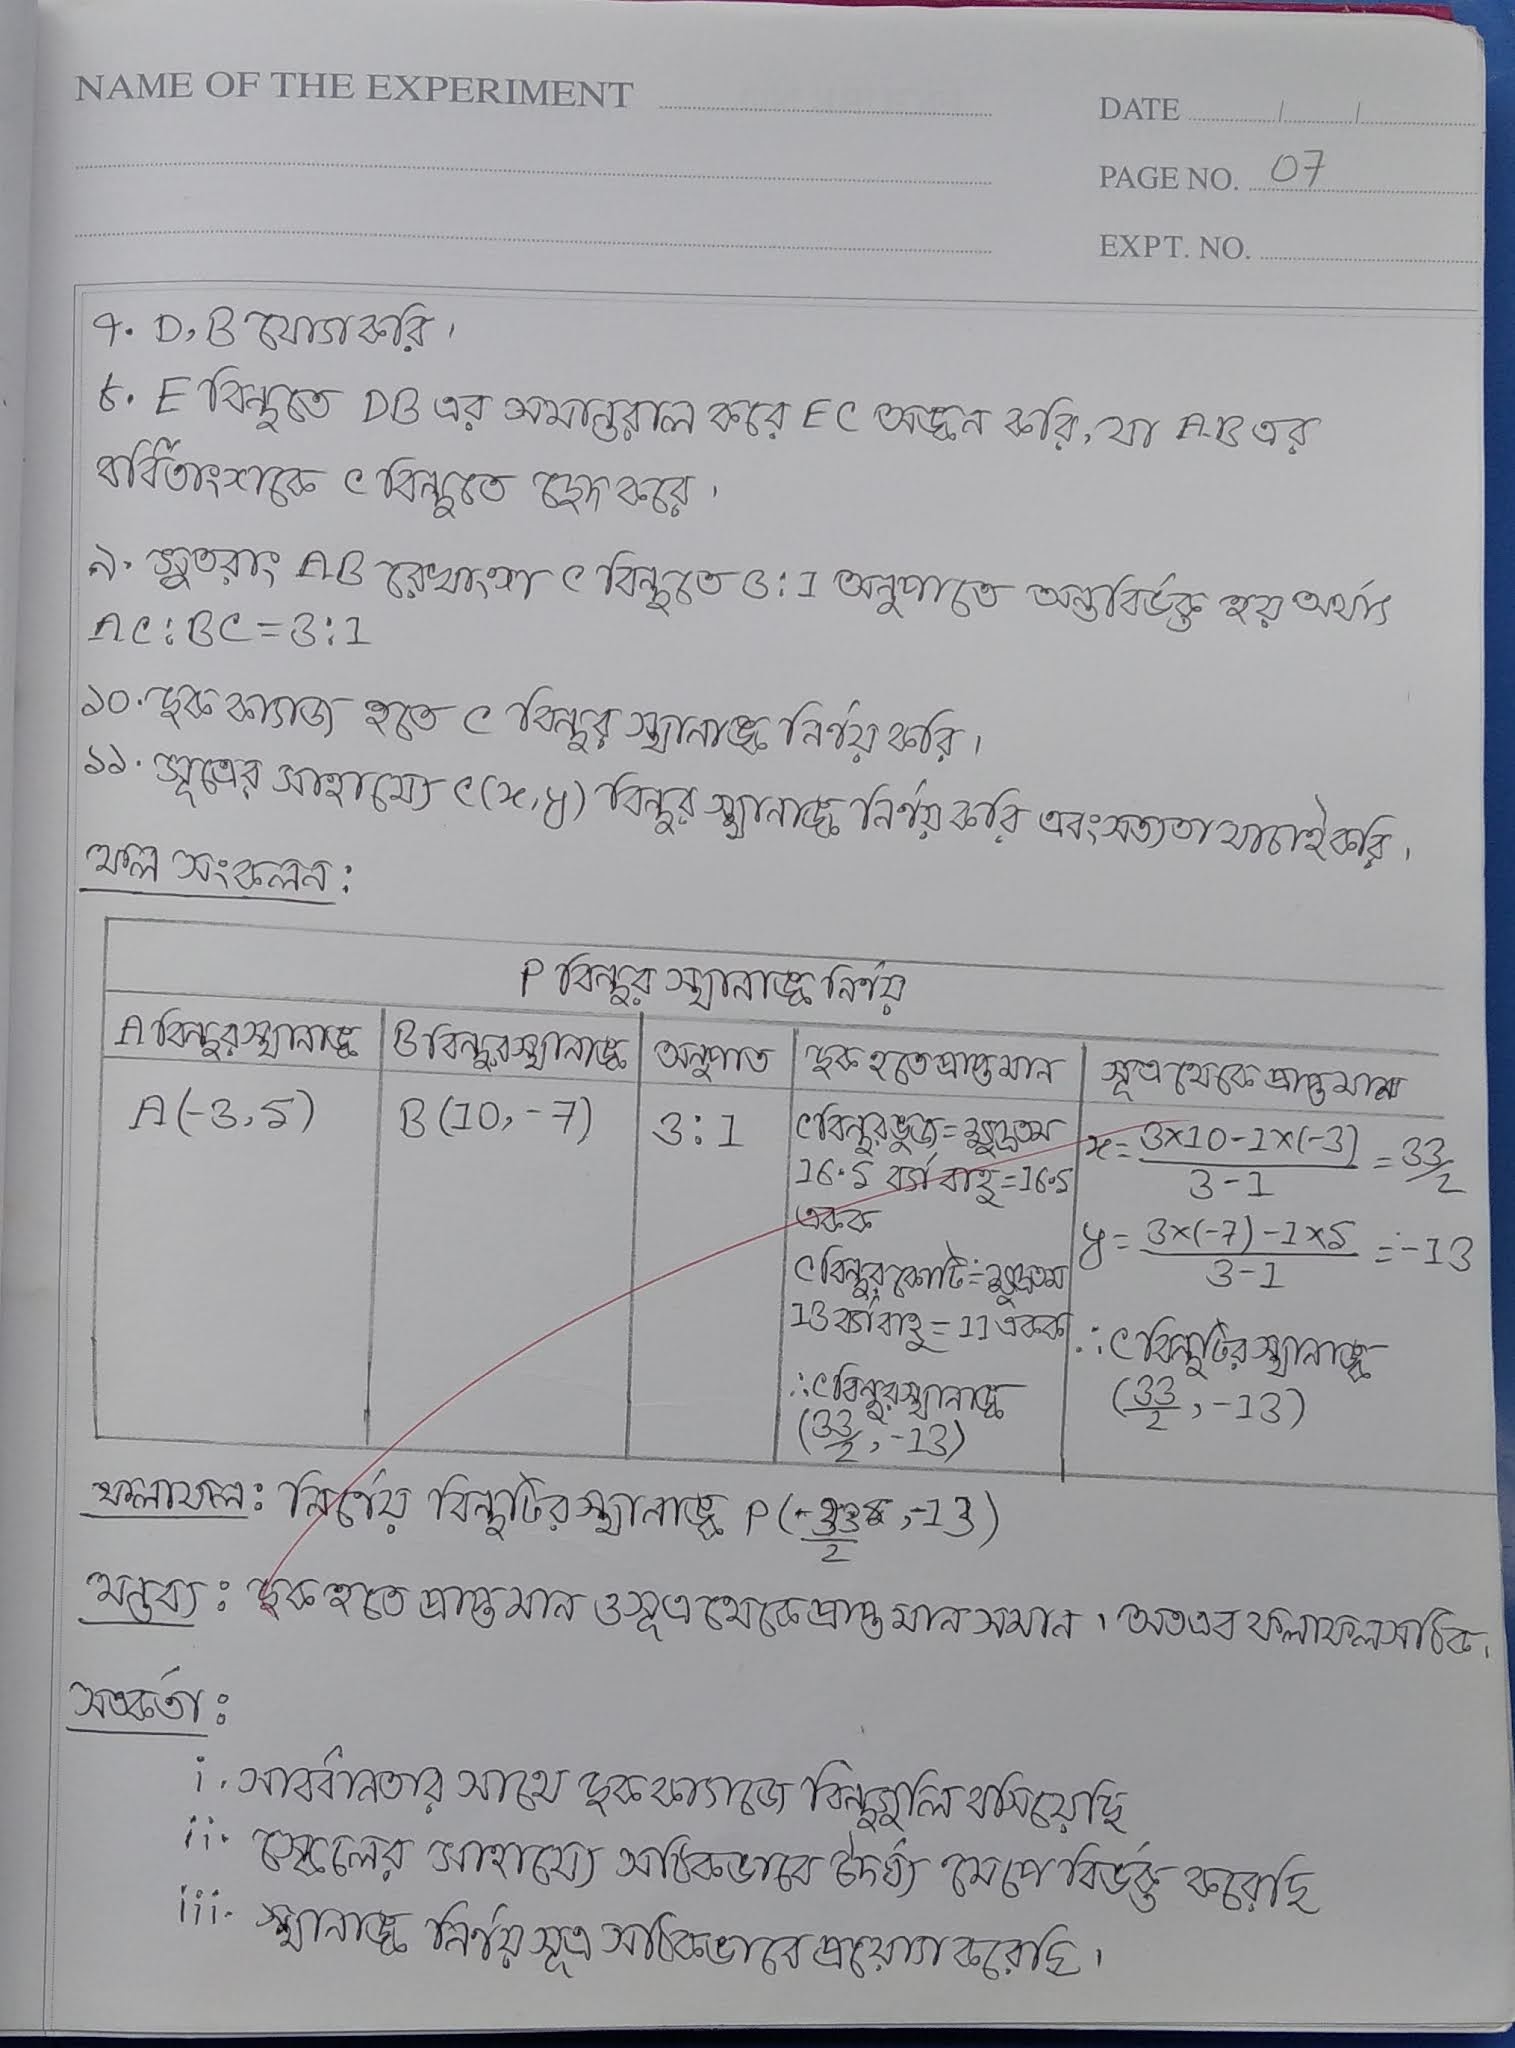 NAME OF THE EXPERIMENT
DATE / /
PAGE NO. 07
EXPT. NO.
৭. D, B যোগ করি।
৮. E বিন্দুতে DB এর সমান্তরাল করে EC অঙ্কন করি, যা AB এর
বর্ধিতাংশকে C বিন্দুতে ছেদ করে।
৯. সুতরাং AB রেখাংশ C বিন্দুতে 3:1 অনুপাতে অন্তবির্ভক্ত হয় অর্থাৎ
AC:BC=3:1
১০. ছক কাগজ হতে C বিন্দুর স্থানাঙ্ক নির্ণয় করি।
১১. সূত্রের সাহায্যে C(x,y) বিন্দুর স্থানাঙ্ক নির্ণয় করি এবং সত্যতা যাচাই করি।
ফল সংকলন:
P বিন্দুর স্থানাঙ্ক নির্ণয়
A বিন্দুর স্থানাঙ্ক B বিন্দুর স্থানাঙ্ক অনুপাত ছক হতে প্রাপ্ত মান সূত্র থেকে প্রাপ্ত মান
A(-3,5) B(10,-7) 3:1
C বিন্দুর ভুজ = ক্ষুদ্রতম
16.5 বর্গ বাহু = 16.5
একক
C বিন্দুর কোটি = ক্ষুদ্রতম
13 বর্গ বাহু = 11 একক
∴ C বিন্দুর স্থানাঙ্ক
(33/2, -13)
x = 3×10-1×(-3) / 3-1 = 33/2
y = 3×(-7)-1×5 / 3-1 = -13
∴ C বিন্দুটির স্থানাঙ্ক
(33/2, -13)
ফলাফল: নির্ণেয় বিন্দুটির স্থানাঙ্ক P(33/2, -13)
মন্তব্য: ছক হতে প্রাপ্ত মান ও সূত্র থেকে প্রাপ্ত মান সমান। অতএব ফলাফল সঠিক।
সতর্কতা:
i. সাবধানতার সাথে ছক কাগজে বিন্দুগুলি বসিয়েছি
ii. স্কেলের সাহায্যে সঠিকভাবে দৈর্ঘ্য মেপে বিভক্ত করেছি
iii. স্থানাঙ্ক নির্ণয় সূত্র সঠিকভাবে প্রয়োগ করেছি।